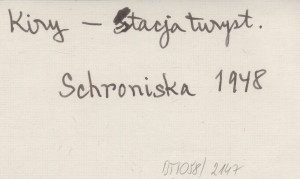 Kiry - Stacja turyst.
Schroniska 1948
2147